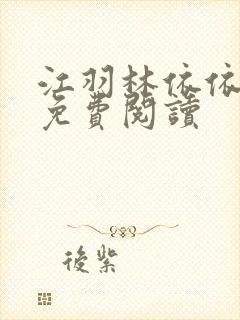 江羽林依依
免費閱讀
後紫